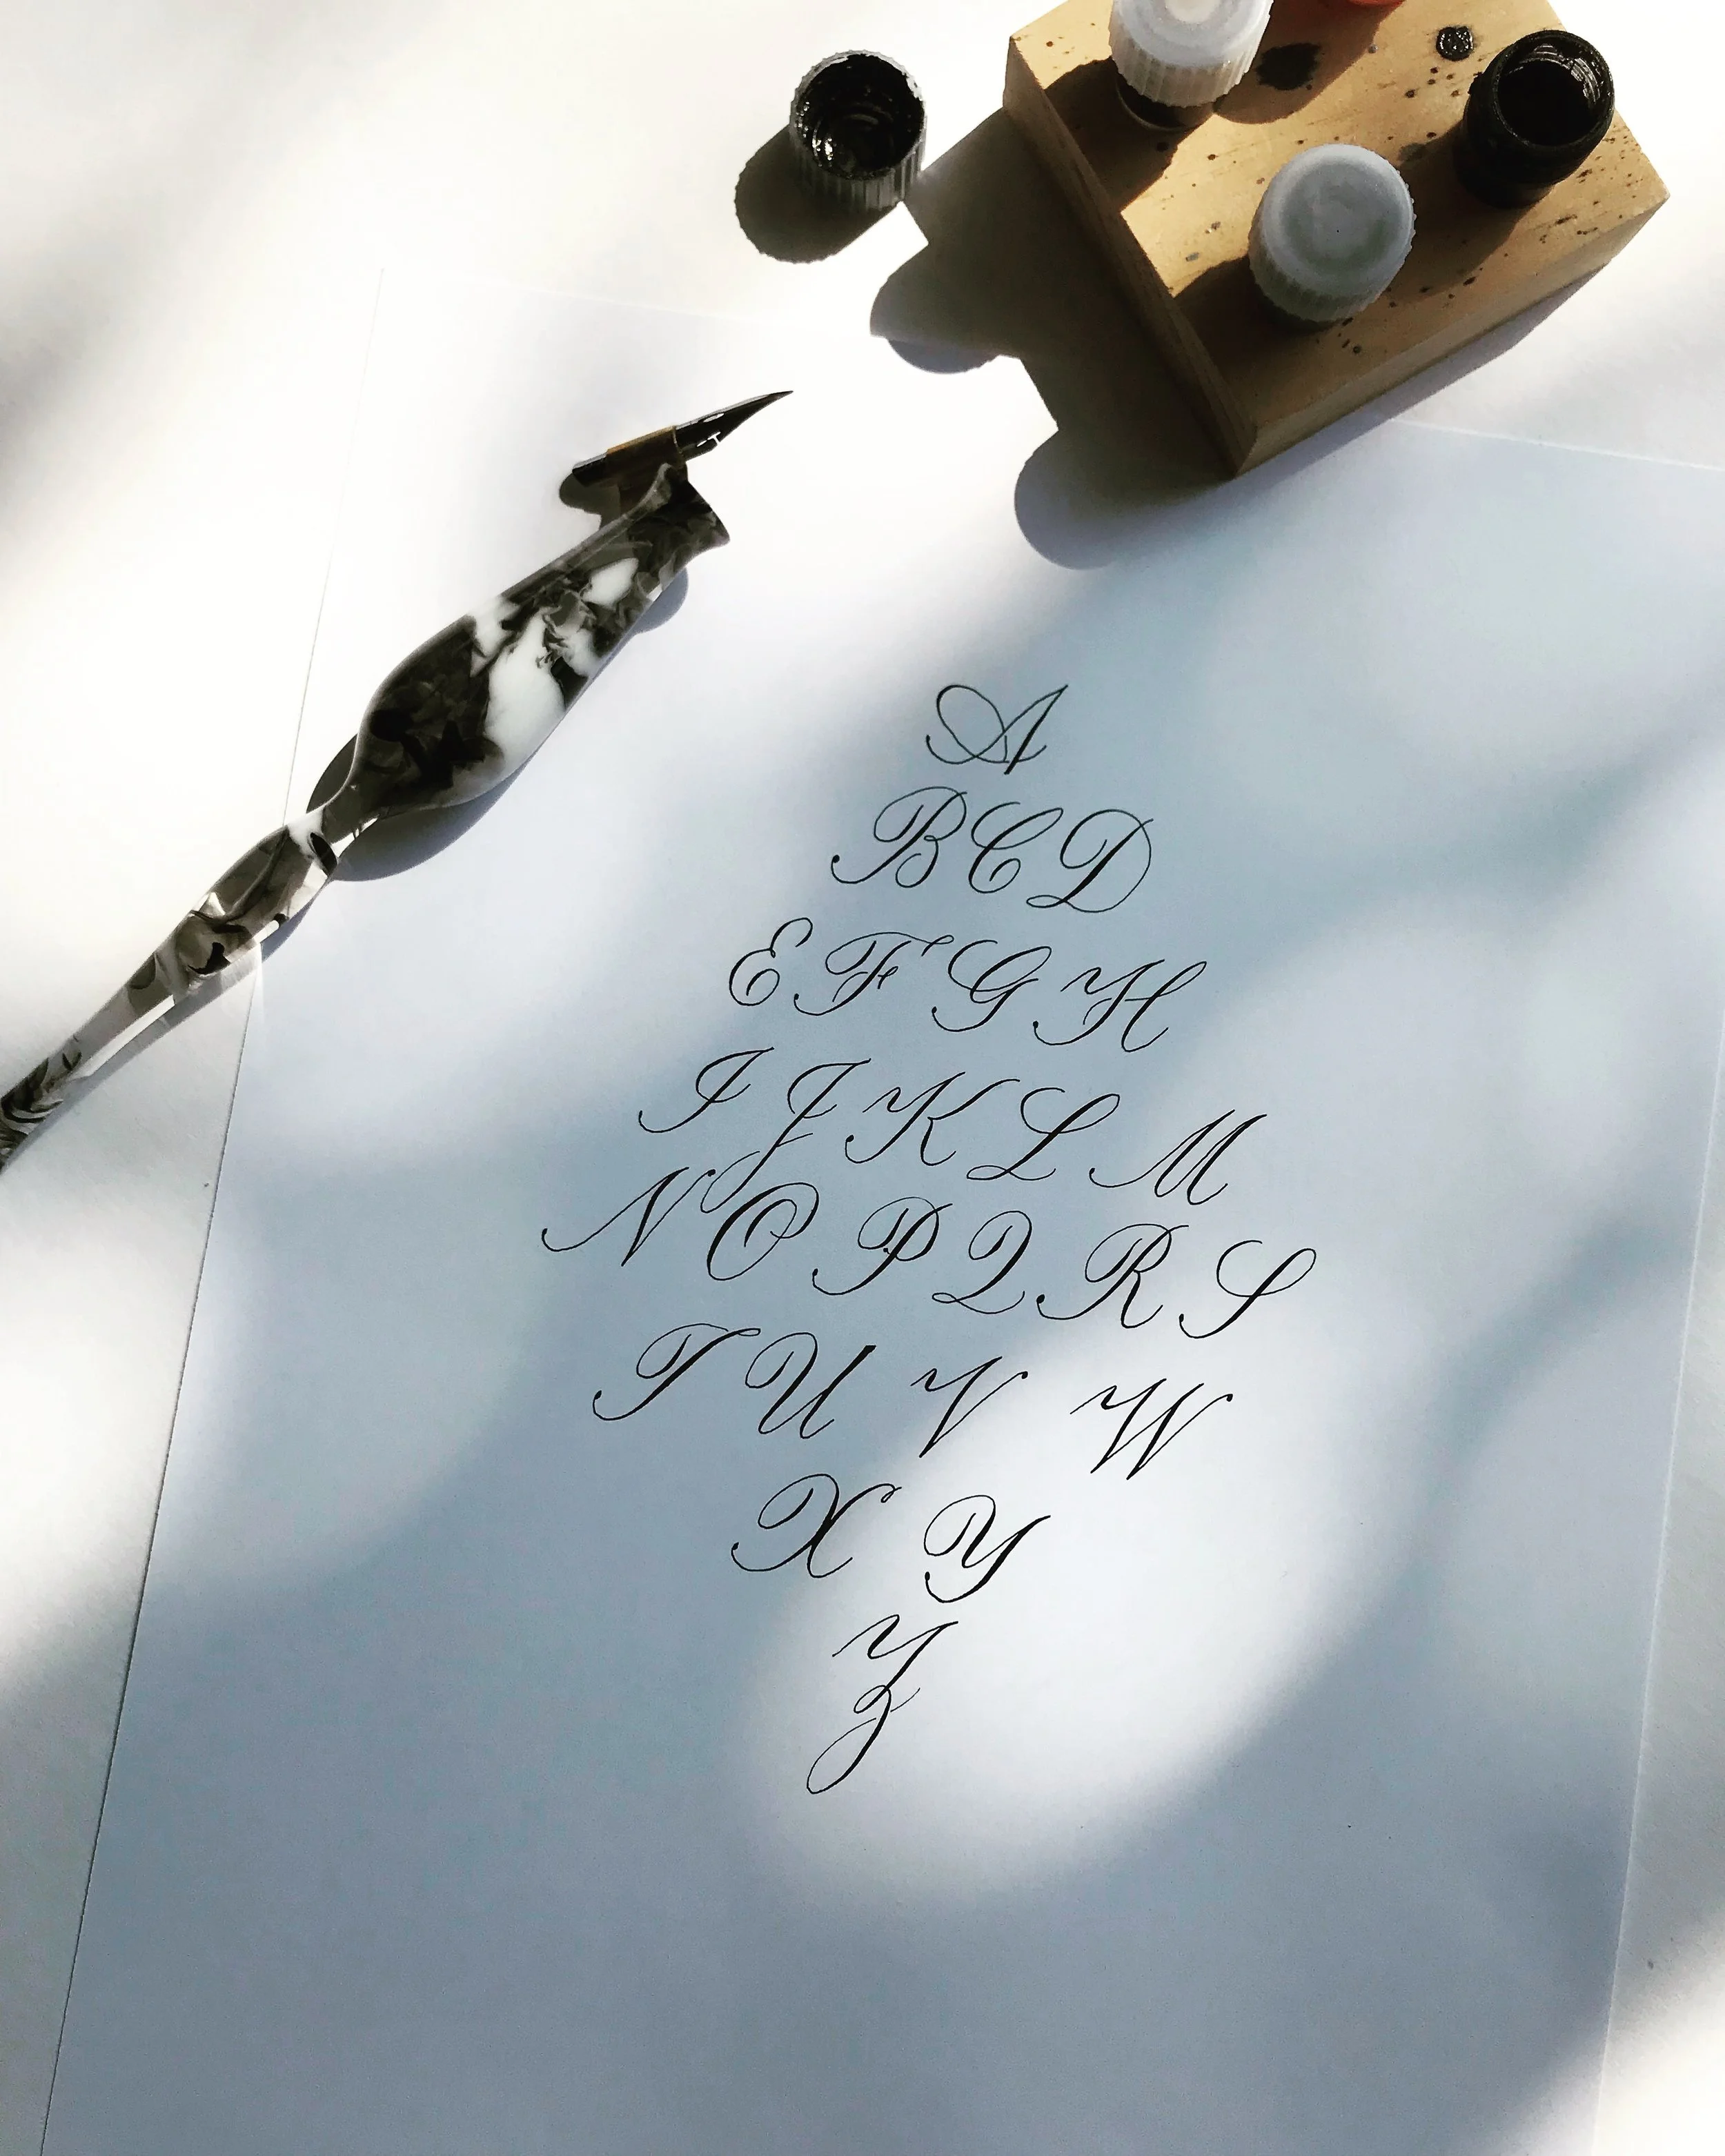 A
BCD
EFGH
IJKLM
NOPQRS
TUVW
XY
Z